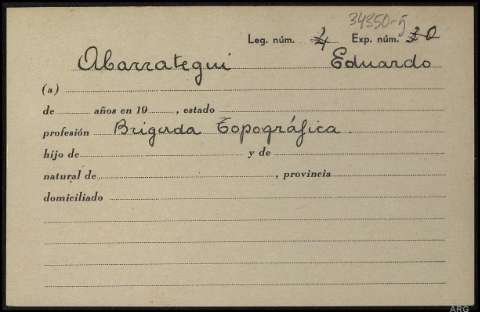 34350-5
Leg. núm. 4 Exp. núm. 20
Abarrategui Eduardo
(a)
de años en 19 , estado
profesión Brigada Topográfica.
hijo de y de
natural de , provincia
domiciliado
ARG